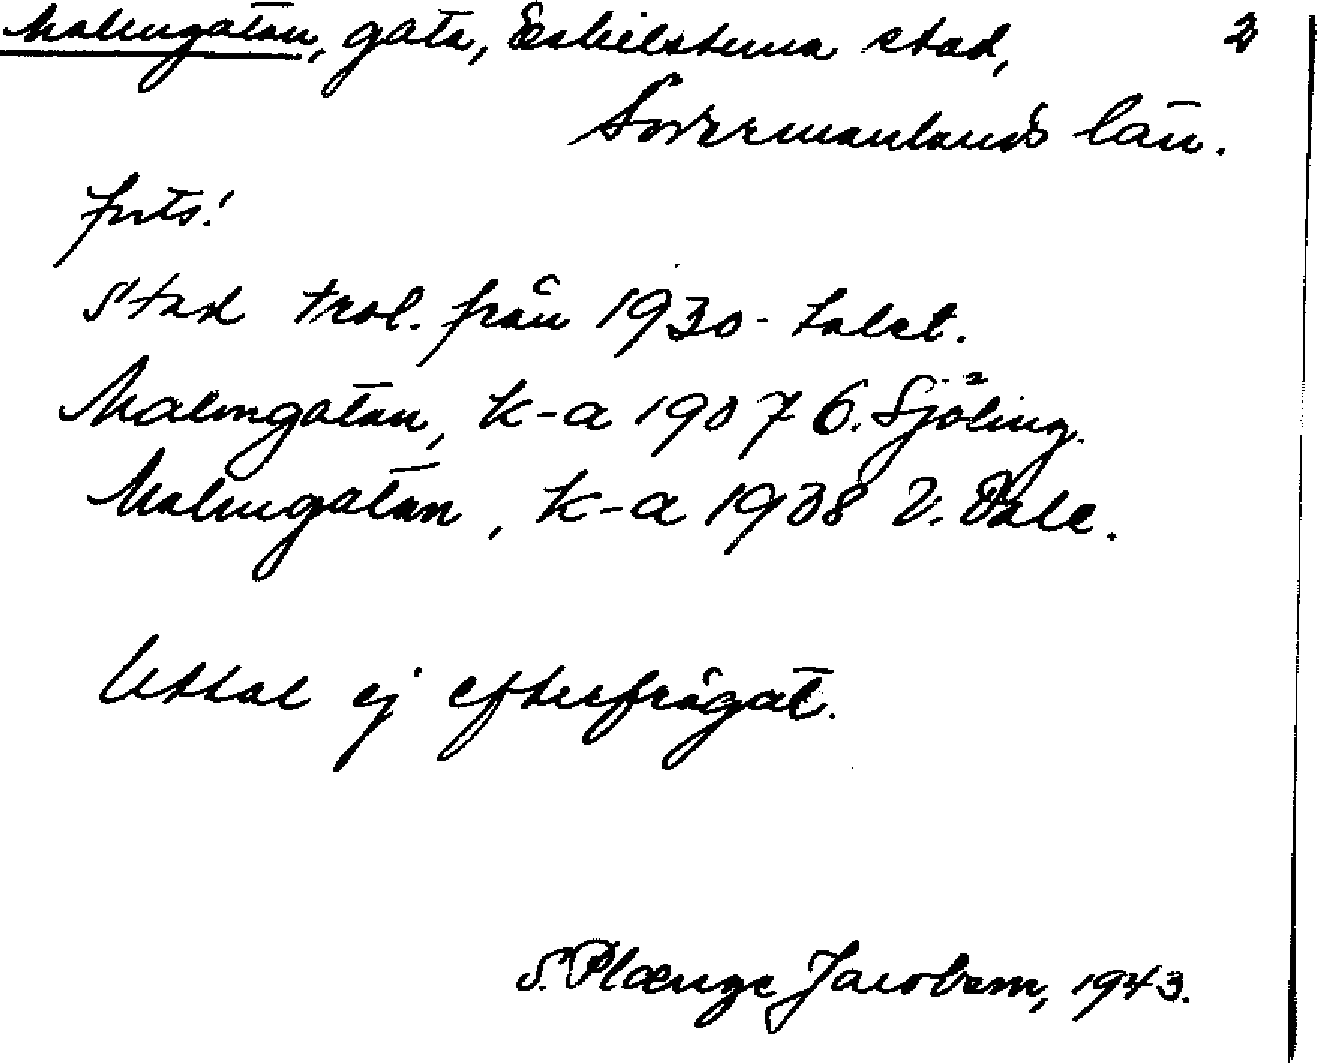 Malmgatan, gata, Eskilstuna stad, 2
Södermanlands län.
forts.
stad trol. från 1930-talet.
Malmgatan, K-a 1907 G. Sjöling.
Malmgatan, K-a 1938 V. Dale.
Uttal ej efterfrågat.
S. Plænge Jacobson, 1943.